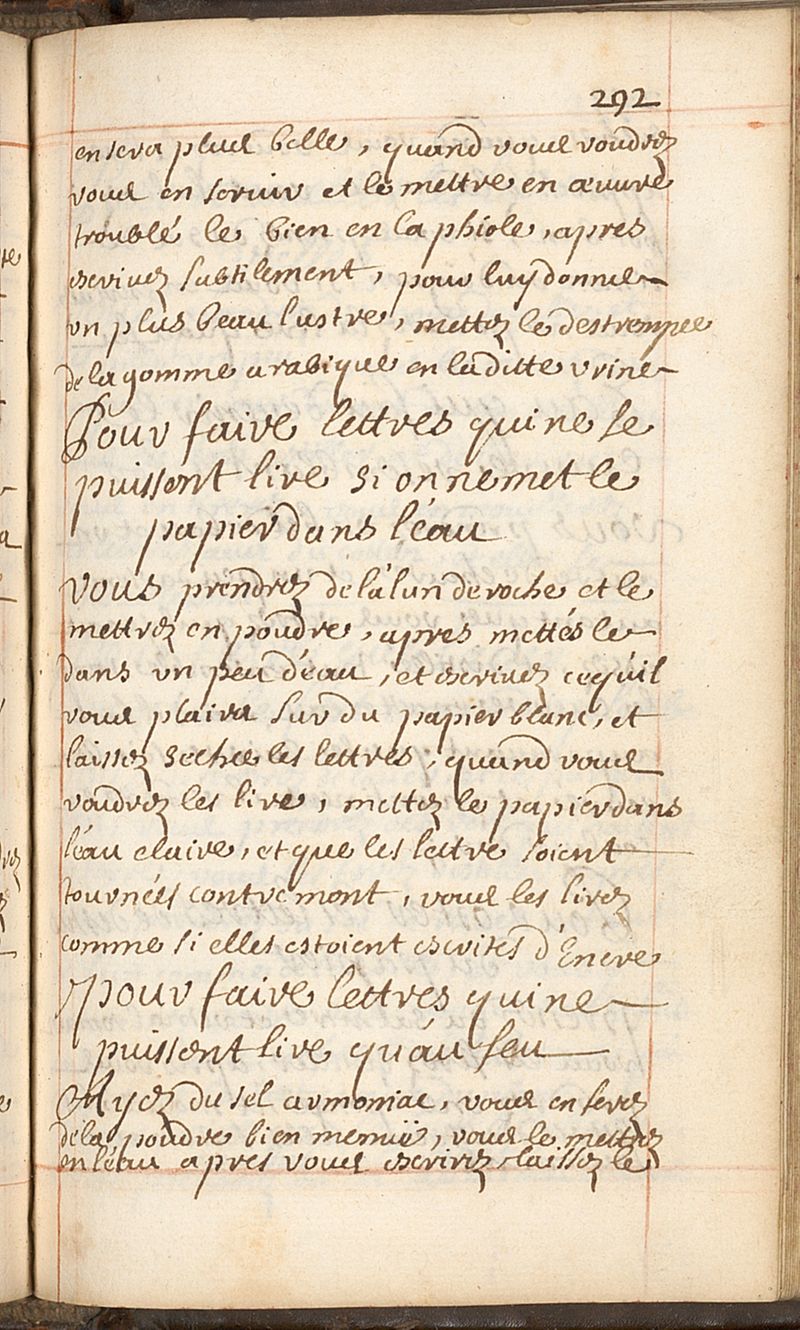 292
en sera plus belle, quand vous voudrez
vous en servir et le mettre en œuvre
troublé le bien en la phiole, apres
escrivez subtilement, pour luy donner
un plus beau lustre, mettez le destrempee
de la gomme arabique en laditte urine
Pour faire lettres qui ne se
puissent lire si on ne met le
papier dans l'éau
Vous prendrez de lálun de roche et le
mettrez en poudre, apres mettés le
dans un peu d'eau, et escrivez ce qúil
vous plaira sur du papier blanc, et
laissez secher les lettres, quand vous
voudrez les lire, mettez le papier dans
l'éau claire, et que les lettre soient
tournées contremont, vous les lirez
comme si elles estoient escrites d'Encre
pour faire lettres qui ne
puissent lire qu'au feu
Ayez du sel armoniac, vous en ferez
de la poudre bien menuë, vous le mettrez
en l'eau apres vous escrirez, laissez le